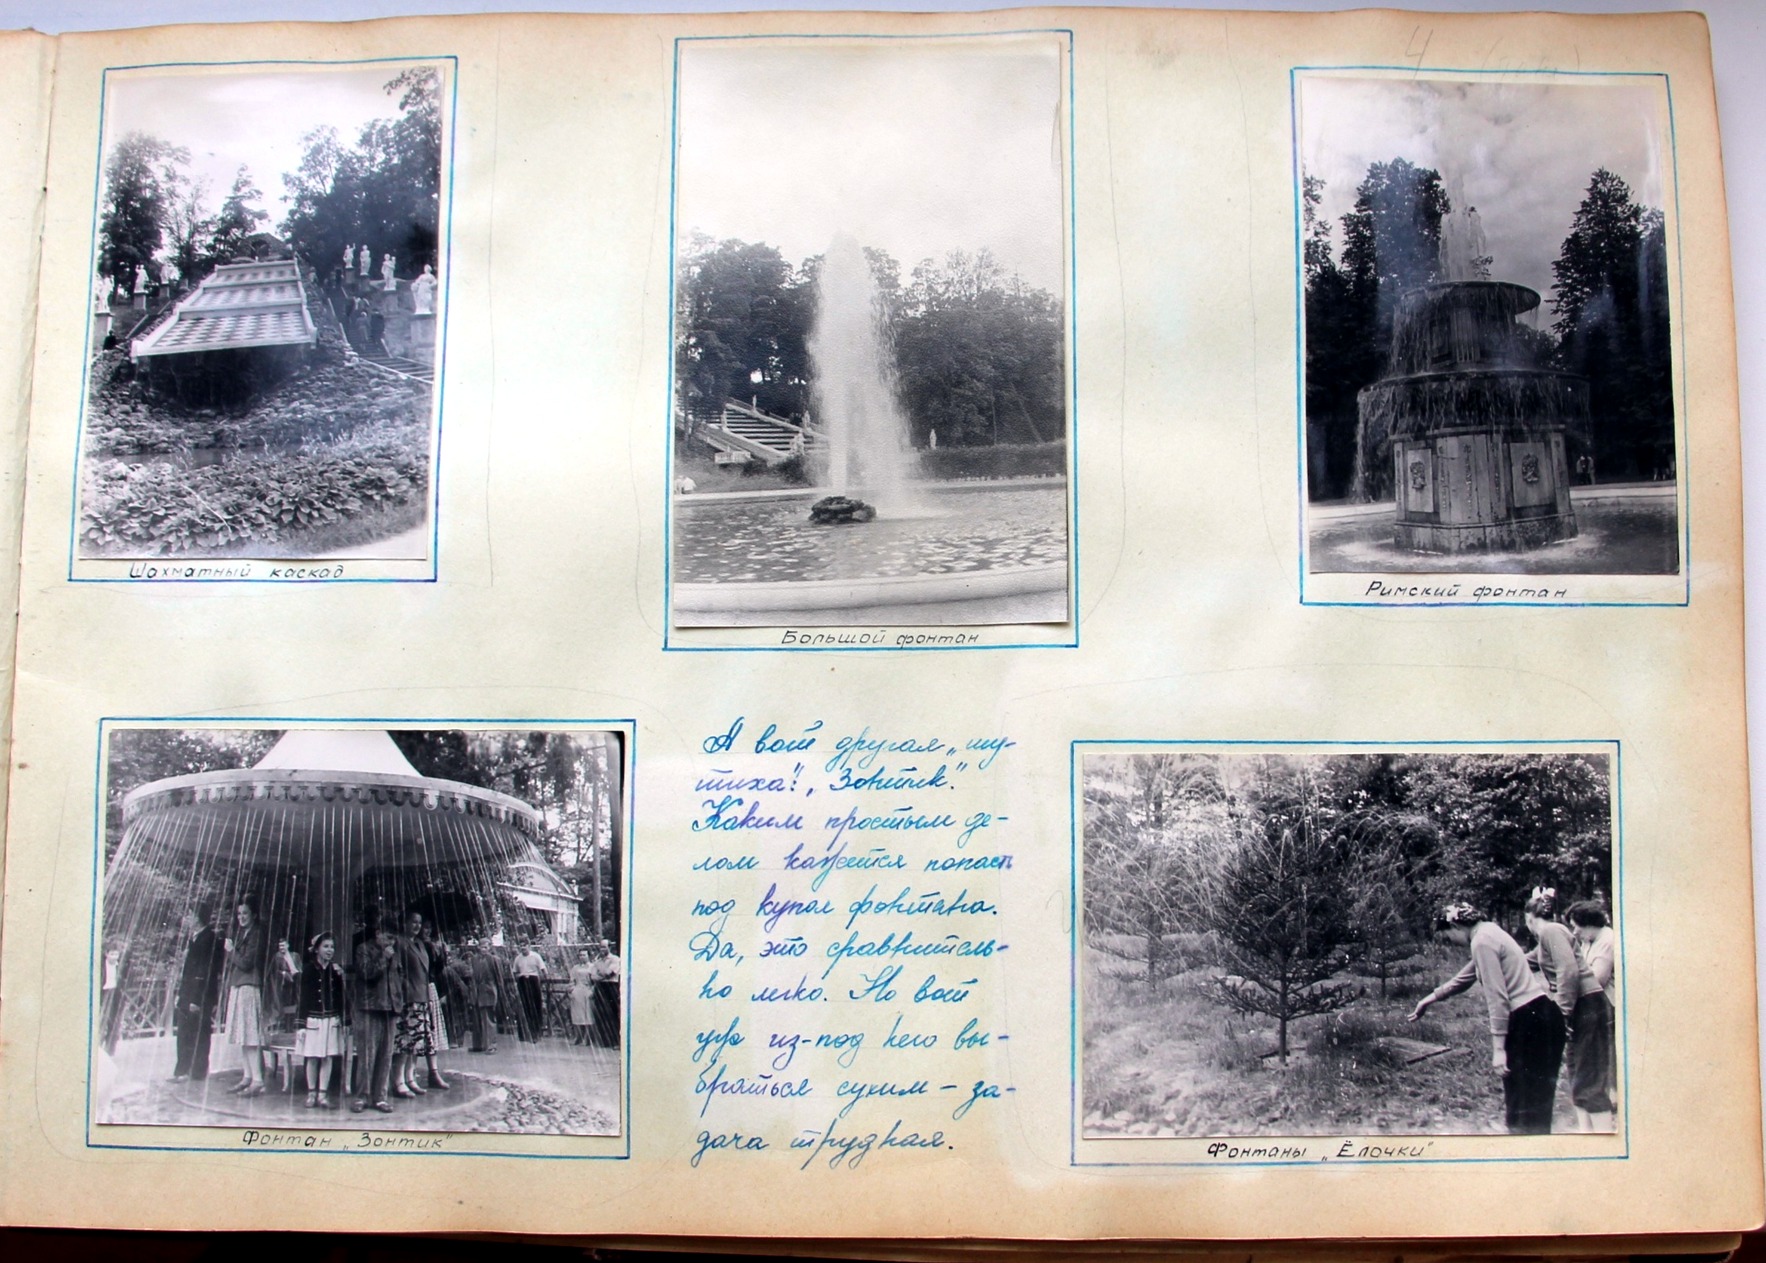 4
Шахматный каскад
Большой фонтан
Римский фонтан
А вот другая „шу-
тиха": „Зонтик".
Каким простым де-
лом кажется попасть
под купол фонтана.
Да, это сравнитель-
но легко. Но вот
уж из-под него вы-
браться сухим – за-
дача трудная.
Фонтан „Зонтик"
Фонтаны „Ёлочки"